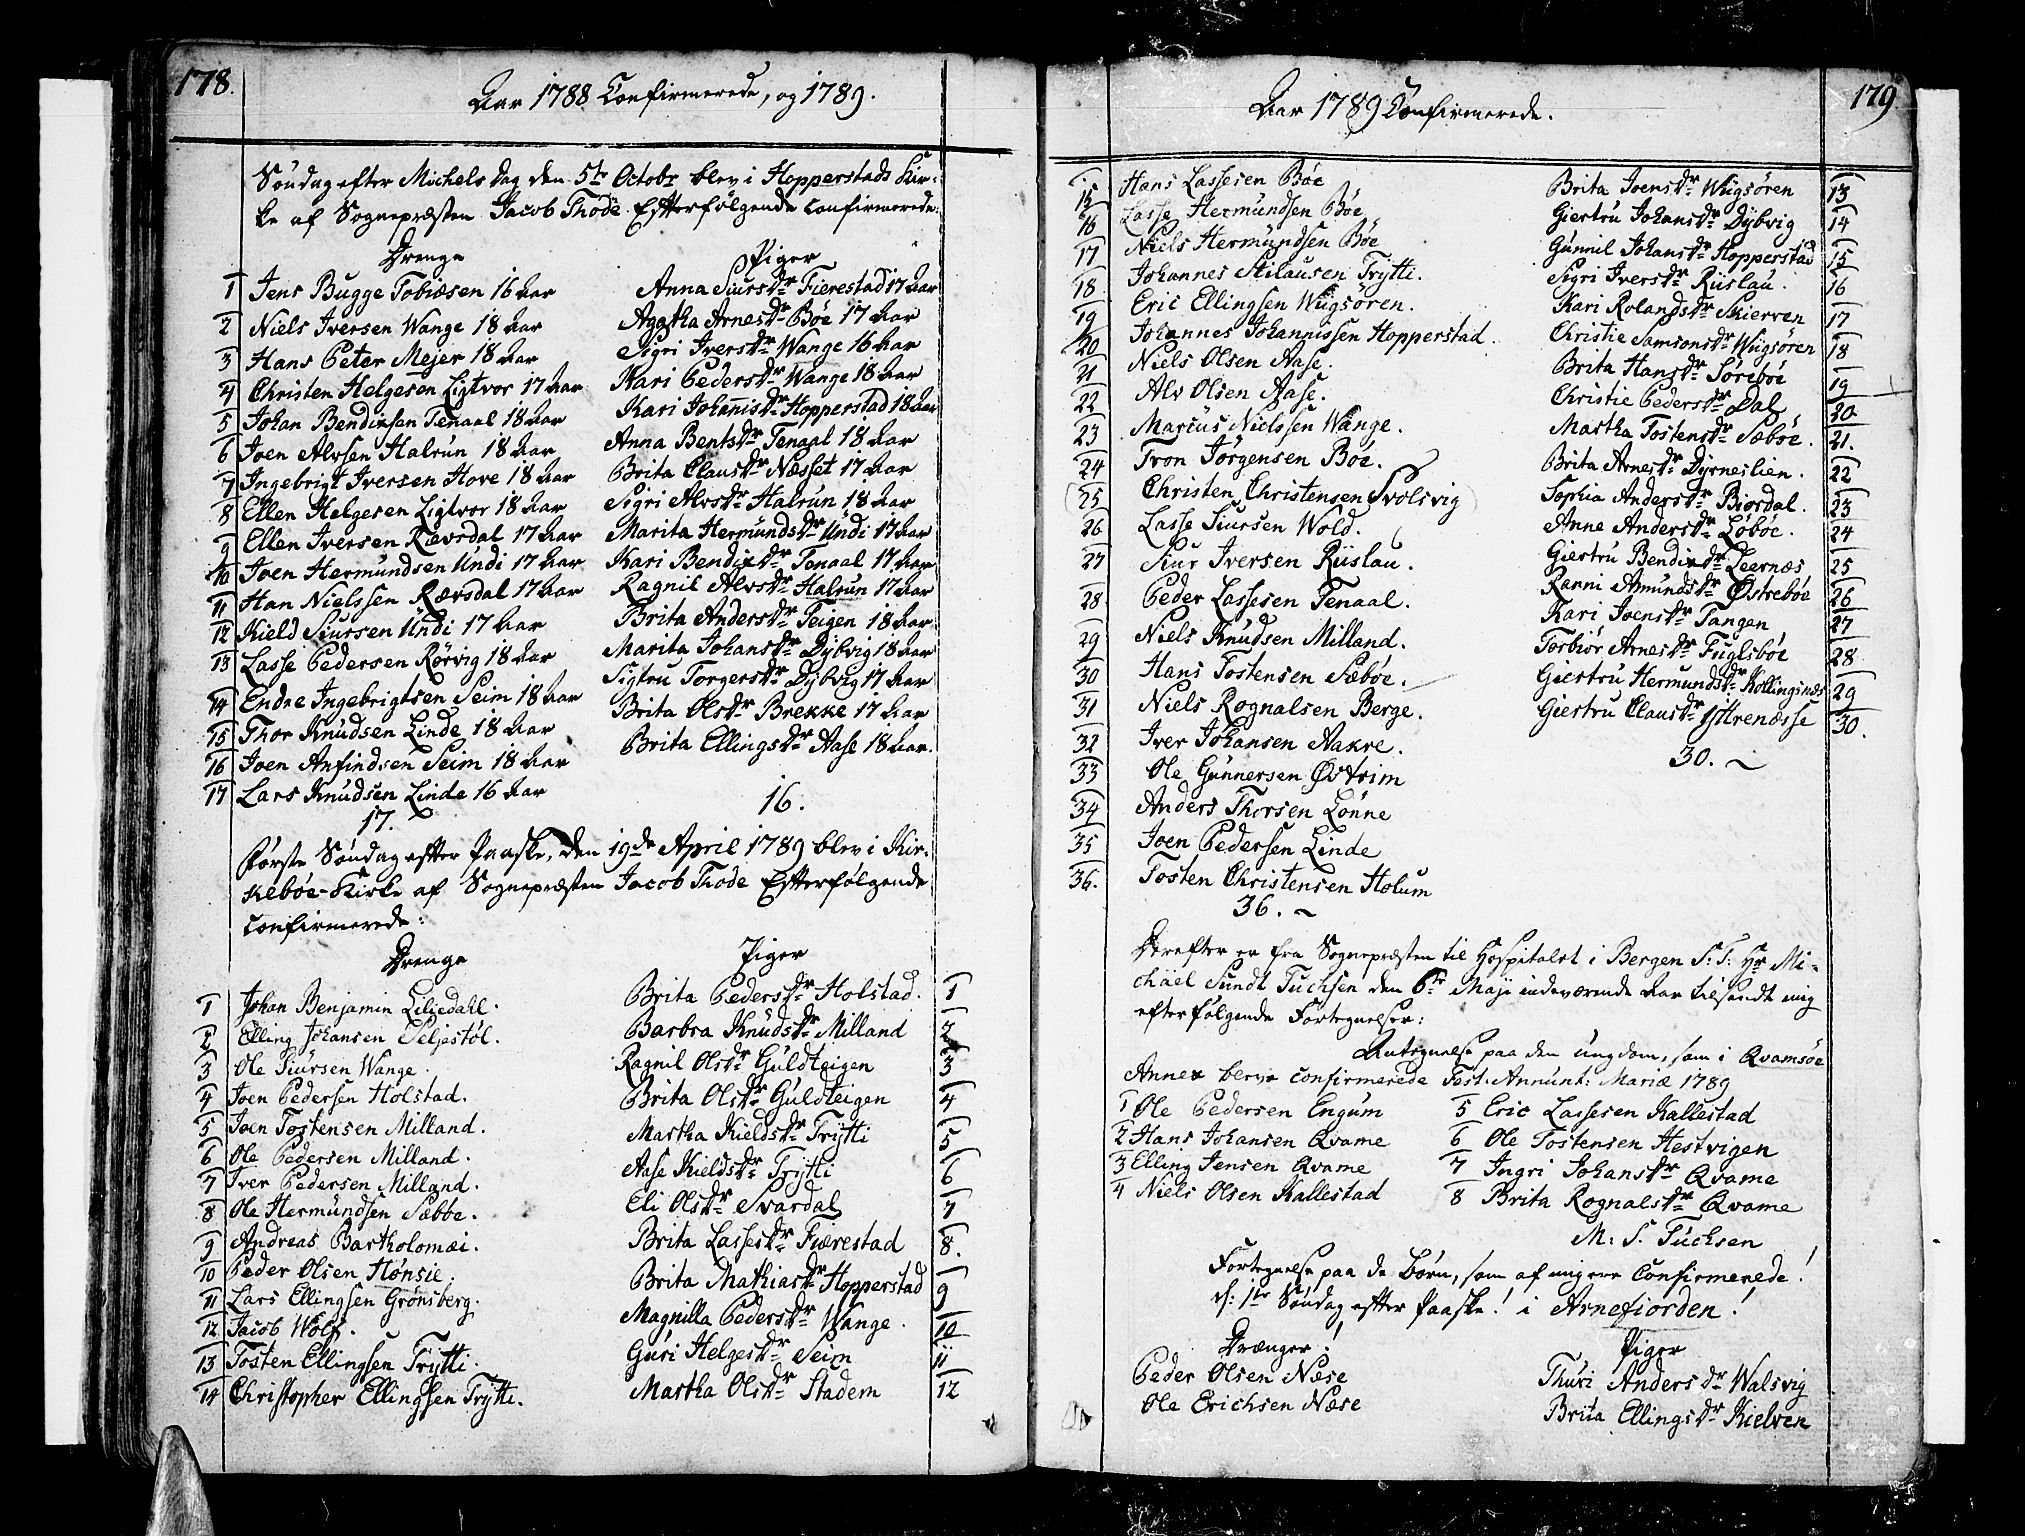 178.
Aar 1788 Confirmerede, og 1789.
Søndag efter Michels Dag den 5te Octobr blev i Hopperstads Kir-
ke af Sognepræsten Jacob Thode Efterfølgende Confirmerede:
Drenge
1 Jens Bugge Tobiæsen 16 Aar
2 Niels Iversen Wange 18 Aar
3 Hans Peter Mejer 18 Aar
4 Christen Helgesen Ligtvor 17 Aar
5 Johan Bendixsen Tenaal 18 Aar
6 Joen Alvsen Halrun 18 Aar
7 Ingebrigt Iversen Hove 18 Aar
8 Ellen Helgesen Ligtvor 18 Aar
9 Ellen Iversen Rævsdal 17 Aar
10 Joen Hermundsen Undi 17 Aar
11 Han Nielssen Rævsdal 17 Aar
12 Kield Siursen Undi 17 Aar
13 Lasse Pedersen Rørvig 18 Aar
14 Endre Ingebrigtsen Seim 18 Aar
15 Thor Knudsen Linde 18 Aar
16 Joen Anfindsen Seim 18 Aar
17 Lars Knudsen Linde 16 Aar
17.
Piger
Anna Siursdr Fierestad 17 Aar
Agatha Arnesdr Bøe 17 Aar
Sigri Iversdr Wange 16 Aar
Kari Pedersdr Wange 18 Aar
Kari Johannisdr Hopperstad 18 Aar
Anna Bentsdr Tenaal 18 Aar
Brita Clausdr Næsset 17 Aar
Sigri Alvsdr Halrun 18 Aar
Marita Hermundsdr Undi 17 Aar
Kari Bendixdr Tenaal 17 Aar
Ragnil Alvsdr Halrun 17 Aar
Brita Andersdr Teigen 18 Aar
Marita Johansdr Dybvig 18 Aar
Sigtru Torgersdr Dybvig 17 Aar
Brita Olsdr Brekke 17 Aar
Brita Ellingsdr Aase 18 Aar.
16.
Første Søndag efter Paaske, den 19de April 1789 blev i Kir-
kebøe-Kirke af Sognepræsten Jacob Thode Efterfølgende
Confirmerede:
Drenge
1 Johan Benjamin Liliedahl.
2 Elling Johansen Seljestøl.
3 Ole Siursen Wange.
4 Joen Pedersen Holstad.
5 Joen Tostensen Milland.
6 Ole Pedersen Milland.
7 Iver Pedersen Milland.
8 Ole Hermundsen Sæbøe.
9 Andreas Bartholomæi.
10 Peder Olsen Hønsie.
11 Lars Ellingsen Grønsberg.
12 Jacob Wolf.
13 Tosten Ellingsen Trytti.
14 Christopher Ellingssen Trytti.
Piger
Brita Pedersdr Holstad. 1
Barbra Knudsdr Milland 2
Ragnil Olsdr Guldteigen 3
Brita Olsdr Guldteigen 4
Martha Kieldsdr Trytti 5
Aase Kieldsdr Trytti 6
Eli Olsdr Svardal 7
Brita Lassesdr Fiærestad 8.
Brita Mathiasdr Hopperstad 9
Magnilla Pedersdr Wange. 10
Guri Helgesdr Seim 11
Martha Olsdr Stadem 12
179
Aar 1789 Confirmerede.
15 Hans Lassesen Bøe
16 Lasse Hermundsen Bøe
17 Niels Hermundsen Bøe
18 Johannes Stilausen Trytti.
19 Eric Ellingsen Wugsøren.
20 Johannes Johannissen Hopperstad.
21 Niels Olsen Aase.
22 Alv Olsen Aase.
23 Marcus Nielssen Wange.
24 Tron Jörgensen Böe.
25 Christen Christensen Svolsvig
26 Lasse Siursen Wold.
27 Siur Iversen Ruslau.
28 Peder Lassesen Tenaal.
29 Niels Knudsen Milland.
30 Hans Tostensen Sæbøe.
31 Niels Rognalsen Berge.
32 Iver Johansen Aakre.
33 Ole Gunnersen Østrim
34 Anders Thorsen Lønne
35 Joen Pedersen Linde
36. Tosten Christensen Holum
36.
Brita Joensdr Wugsøren 13
Giertru Johansdr Dybvig 14
Gunnil Johansdr Hopperstad 15
Sigri Iversdr Ruslau. 16
Kari Rolandsdr Skierven 17
Christie Samsonsdr Wugsøren 18
Brita Hansdr Sørebøe 19
Christie Pedersdr Dal 20
Martha Tostensdr Sæbøe. 21.
Brita Arnesdr Dyrneslien. 22
Sophia Andersdr Biordal. 23
Anne Andersdr Løbøe. 24
Giertru Bendixdr Leernæs 25
Ranni Amundsdr Østrebøe 26
Kari Joensdr Tangen 27
Torbiør Arnesdr Fuglsbøe 28
Giertru Hermundsdr Kollingsnæs 29
Giertru Clausdr Yttrenæsse 30.
30.
Derefter er fra Sognepræsten til Hospitalet i Bergen S: T: Hr Mi-
chäel Sundt Tuchsen den 6te Maji indeværende Aar tilsendt mig
efterfølgende Fortegnelser:
Antegnelse paa den ungdom, som i Qvamsøe
Annex bleve confirmerede Fest: Annunt: Mariæ 1789
1 Ole Pedersen Engum
2 Hans Johansen Qvame
3 Elling Jensen Qvame
4 Niels Olsen Kallestad
5 Eric Lassesen Kallestad
6 Ole Tostensen Hestvigen
7 Ingri Johansdr Qvame
8 Brita Rognalsdr Qvame
M: S. Tuchsen
Fortegnelse paa de Børn, som af mig ere Confirmerede!
d: 1te Søndag efter Paaske! i Arnefiorden!
Drænger!
Peder Olsen Næse
Ole Erichsen Næse
Piger
Thuri Andersdr Walsvig
Brita Ellingsdr Kielven